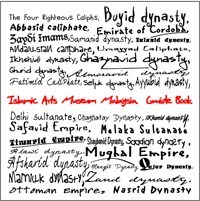 The Four Righteous Caliphs, Buyid dynasty,
Abbasid caliphate, Emirate of Cordoba,
Zaydi Imams, Samanid dynasty, Ziyarid dynasty,
Andalusian caliphate, Umayyad Caliphate,
Ikhshidid dynasty, Ghaznavid dynasty,
Ghurid dynasty, Almoravid dynasty,
Fatimid Caliphate, Seljuk dynasty, Ayyubid dynasty,
Islamic Arts Museum Malaysia Guide Book
Delhi sultanate, Chaghatay Dynasty,
Safavid Empire, Malaka Sultanate
Timurid Empire, Shaybanid Dynasty, Saadian dynasty,
Mughal Empire,
Afsharid dynasty, Qajar Dynasty,
Mamluk dynasty, Zand dynasty,
Ottoman Empire, Nasrid Dynasty